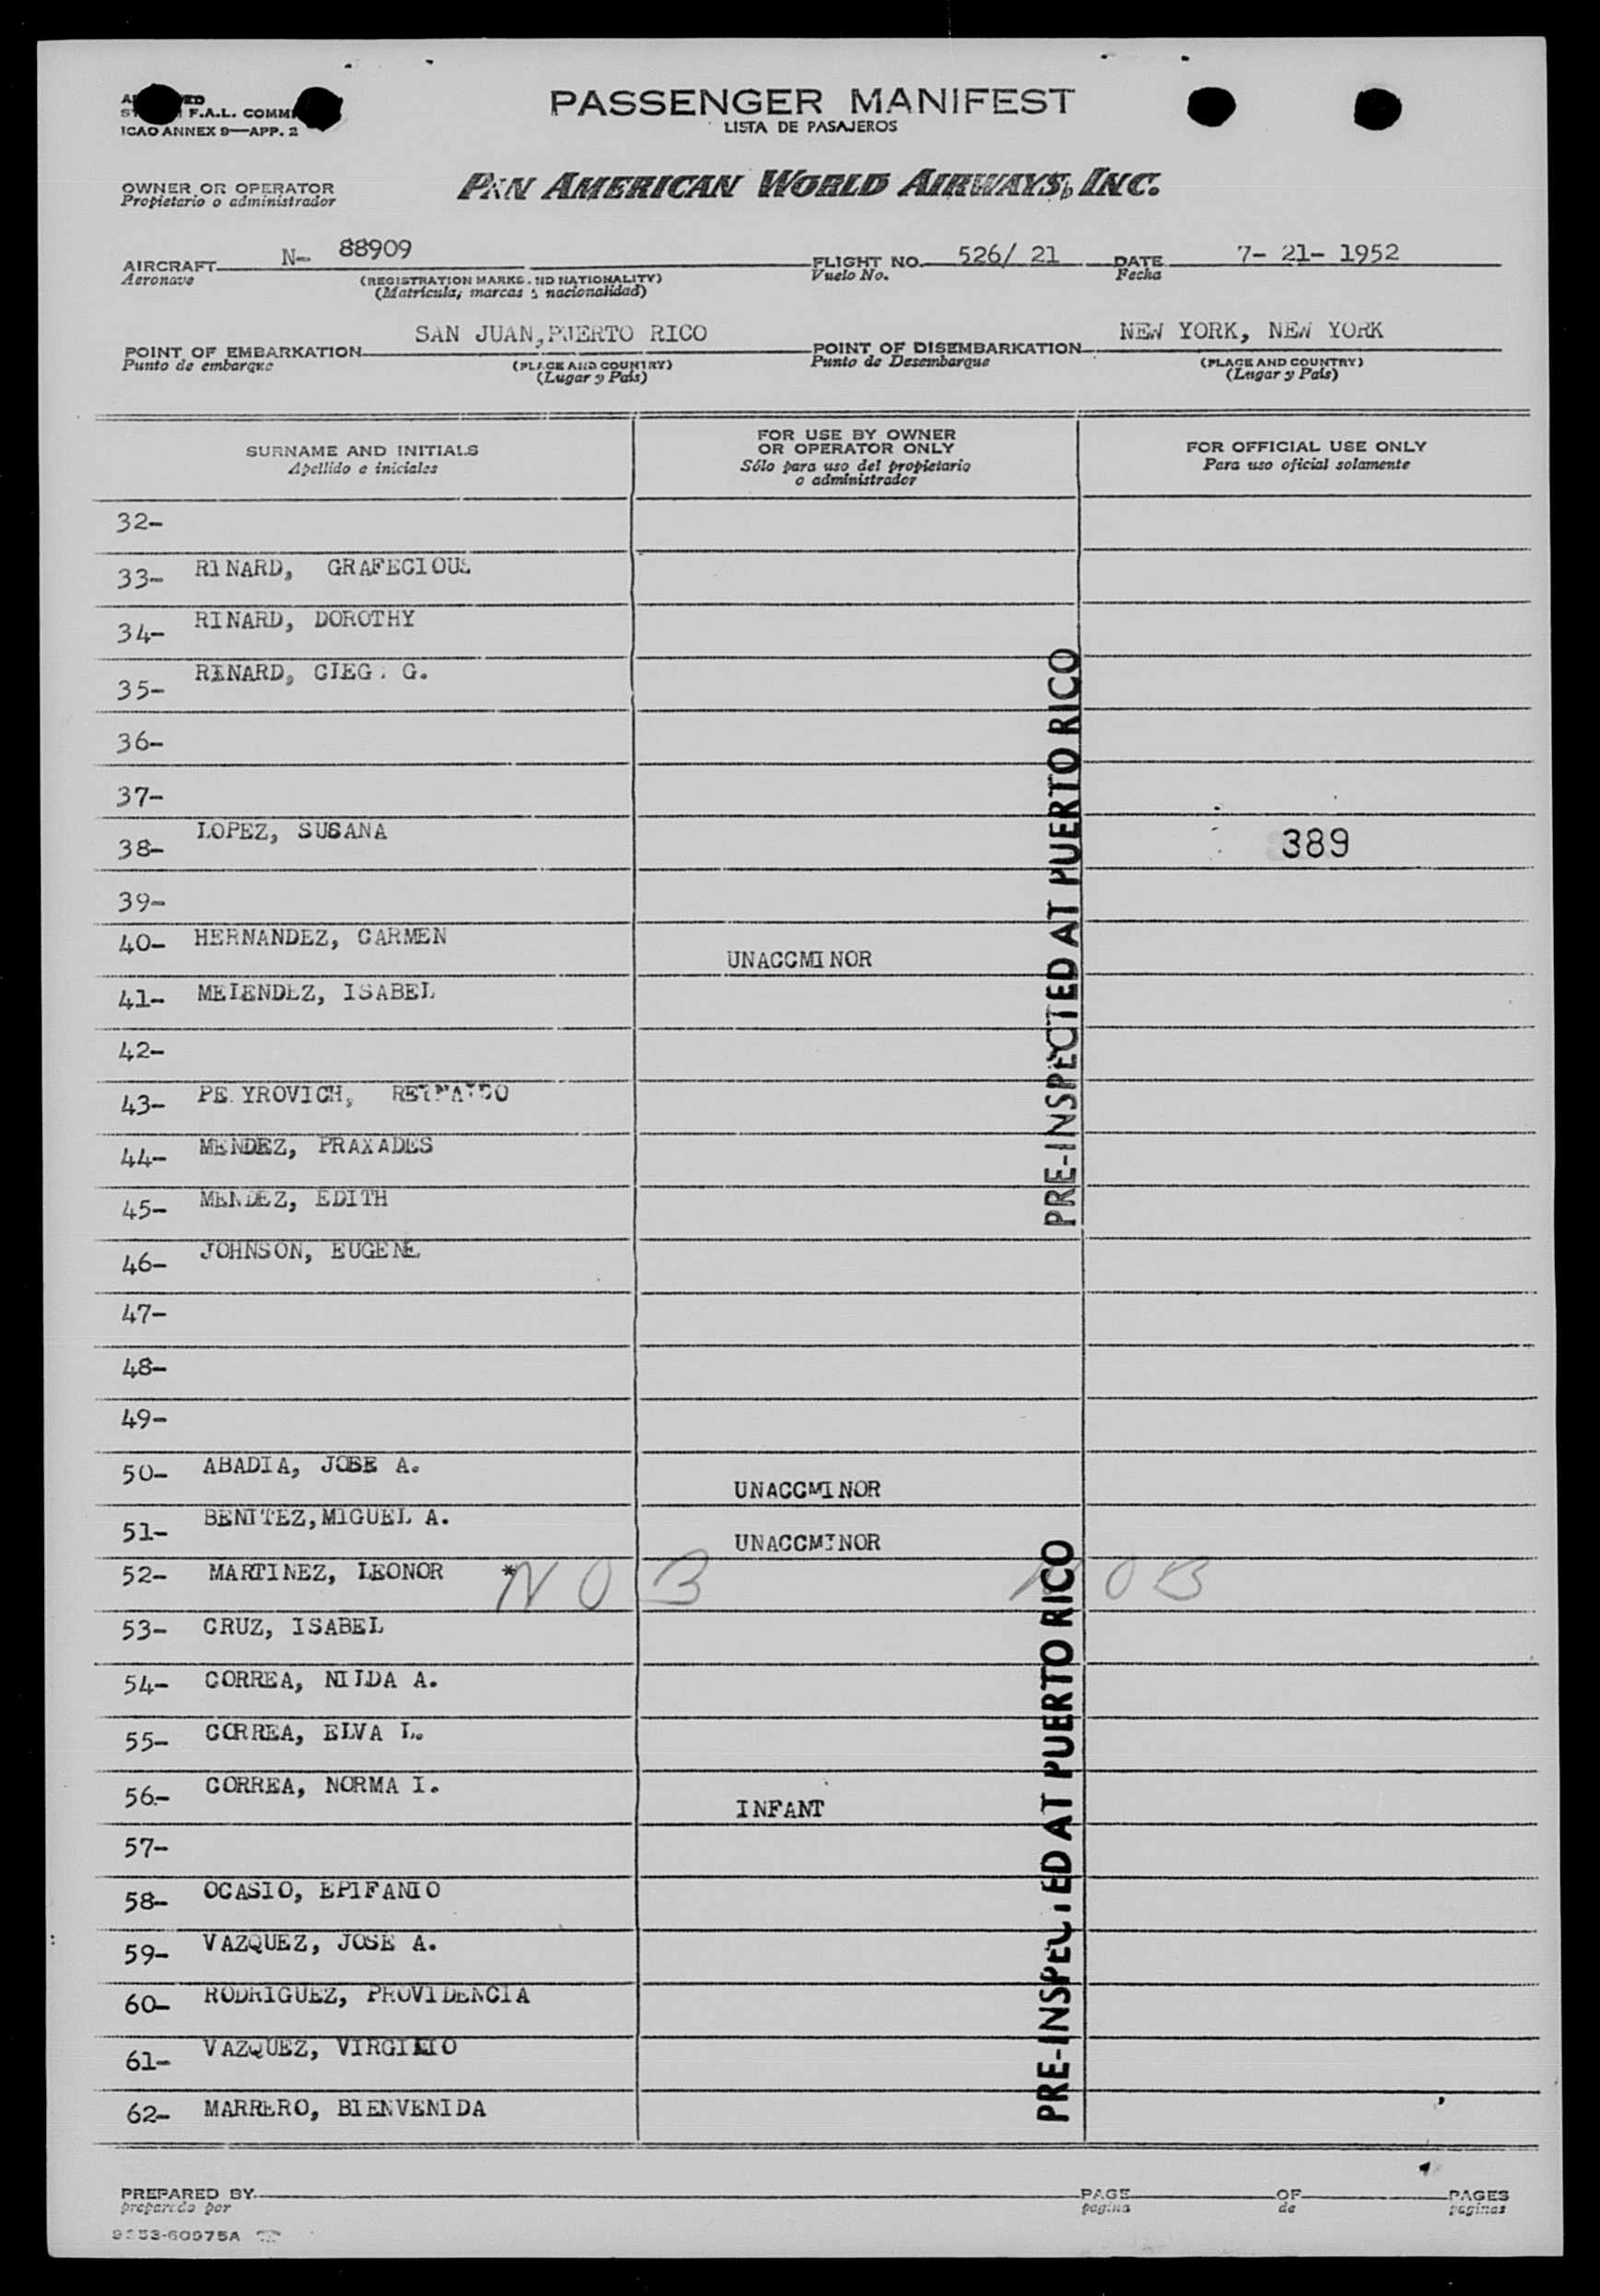 F.A.L.
ICAO ANNEX 9—APP. 2
PASSENGER MANIFEST
LISTA DE PASAJEROS
OWNER OR OPERATOR
Propietario o administrador
PAN AMERICAN WORLD AIRWAYS, INC.
AIRCRAFT N- 88909
Aeronave
(REGISTRATION MARKS AND NATIONALITY)
(Matrícula, marcas y nacionalidad)
FLIGHT NO. 526/ 21
Vuelo No.
DATE 7- 21- 1952
Fecha
POINT OF EMBARKATION SAN JUAN,PUERTO RICO
Punto de embarque
(PLACE AND COUNTRY)
(Lugar y País)
POINT OF DISEMBARKATION NEW YORK, NEW YORK
Punto de Desembarque
(PLACE AND COUNTRY)
(Lugar y País)
SURNAME AND INITIALS
Apellido e iniciales
FOR USE BY OWNER
OR OPERATOR ONLY
Sólo para uso del propietario
o administrador
FOR OFFICIAL USE ONLY
Para uso oficial solamente
32-
33- RINARD, GRAFECIOUS
34- RINARD, DOROTHY
35- RINARD, G.
36-
37-
38- LOPEZ, SUSANA 389
39-
40- HERNANDEZ, CARMEN UNACCMINOR
41- MELENDEZ, ISABEL
42-
43-
44- MENDEZ, PRAXADES
45- MENDEZ, EDITH
46- JOHNSON, EUGENE
47-
48-
49-
50- ABADIA, JOSE A. UNACCMINOR
51- BENITEZ,MIGUEL A. UNACCMINOR
52- MARTINEZ, LEONOR * NOB NOB
53- CRUZ, ISABEL
54- CORREA, NILDA A.
55- CORREA, ELVA L.
56- CORREA, NORMA I. INFANT
57-
58- OCASIO, EPIFANIO
59- VAZQUEZ, JOSE A.
60- RODRIGUEZ, PROVIDENCIA
61- VAZQUEZ, VIRGILIO
62- MARRERO, BIENVENIDA
PRE-INSPECTED AT PUERTO RICO
PRE-INSPECTED AT PUERTO RICO
PREPARED BY
preparado por
PAGE
pagina
OF
de
PAGES
paginas